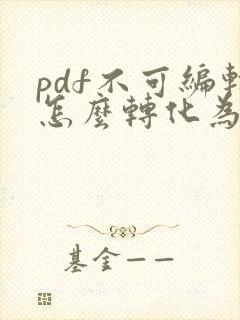 pdf不可編輯
怎麼轉化為
基金——